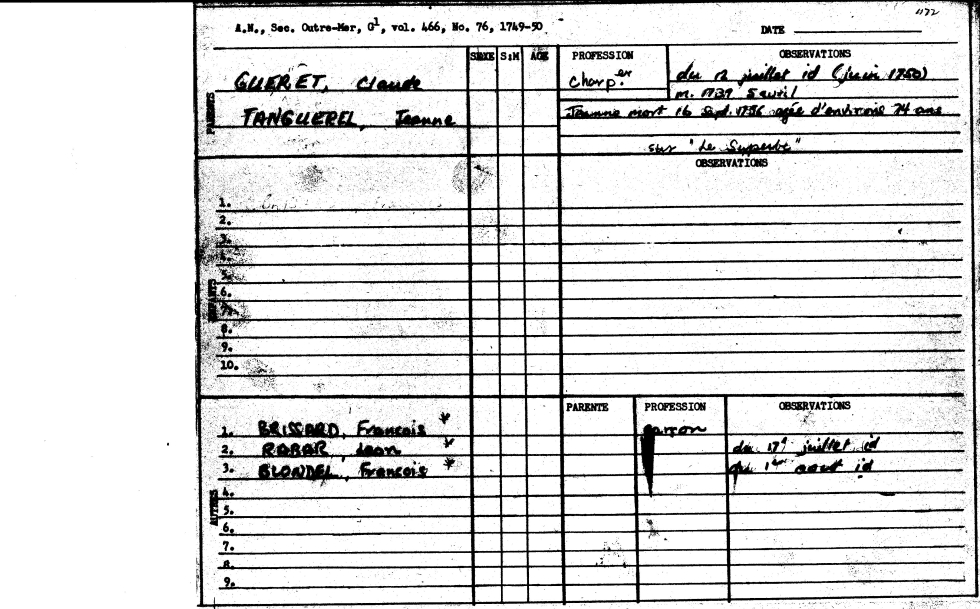 1172
A.N., Sec. Outre-Mer, G1, vol. 466, No. 76, 1749-50
DATE
SEXE S:M AGE PROFESSION OBSERVATIONS
PARENTS
GUERET, Claude Charp.er du 12 juillet id (juin 1750)
m. 1739 5 avril
TANGUEREL, Jeanne Jeanne mort 16 Sept. 1756 agée d'environs 74 ans
sur "Le Superbe"
OBSERVATIONS
ENFANTS
1.
2.
3.
4.
5.
6.
7.
8.
9.
10.
PARENTE PROFESSION OBSERVATIONS
AUTRES
1. BRISSARD, Francois * garcon
2. RABAR, Jean * du 17d juillet id
3. BLONDEL, Francois * du 1er aout id
4.
5.
6.
7.
8.
9.